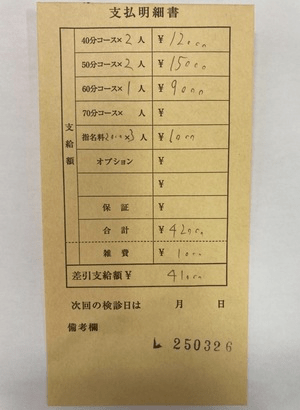 支払明細書
支給額
40分コース× 2 人 ¥ 12000
50分コース× 2 人 ¥ 15000
60分コース× 1 人 ¥ 9000
70分コース× 人 ¥
指名料 ×3 人 ¥ 000
オプション ¥
¥
保証 ¥
合計 ¥ 42000
雑費 ¥ 1000
差引支給額 ¥ 41000
次回の検診日は 月 日
備考欄
250326